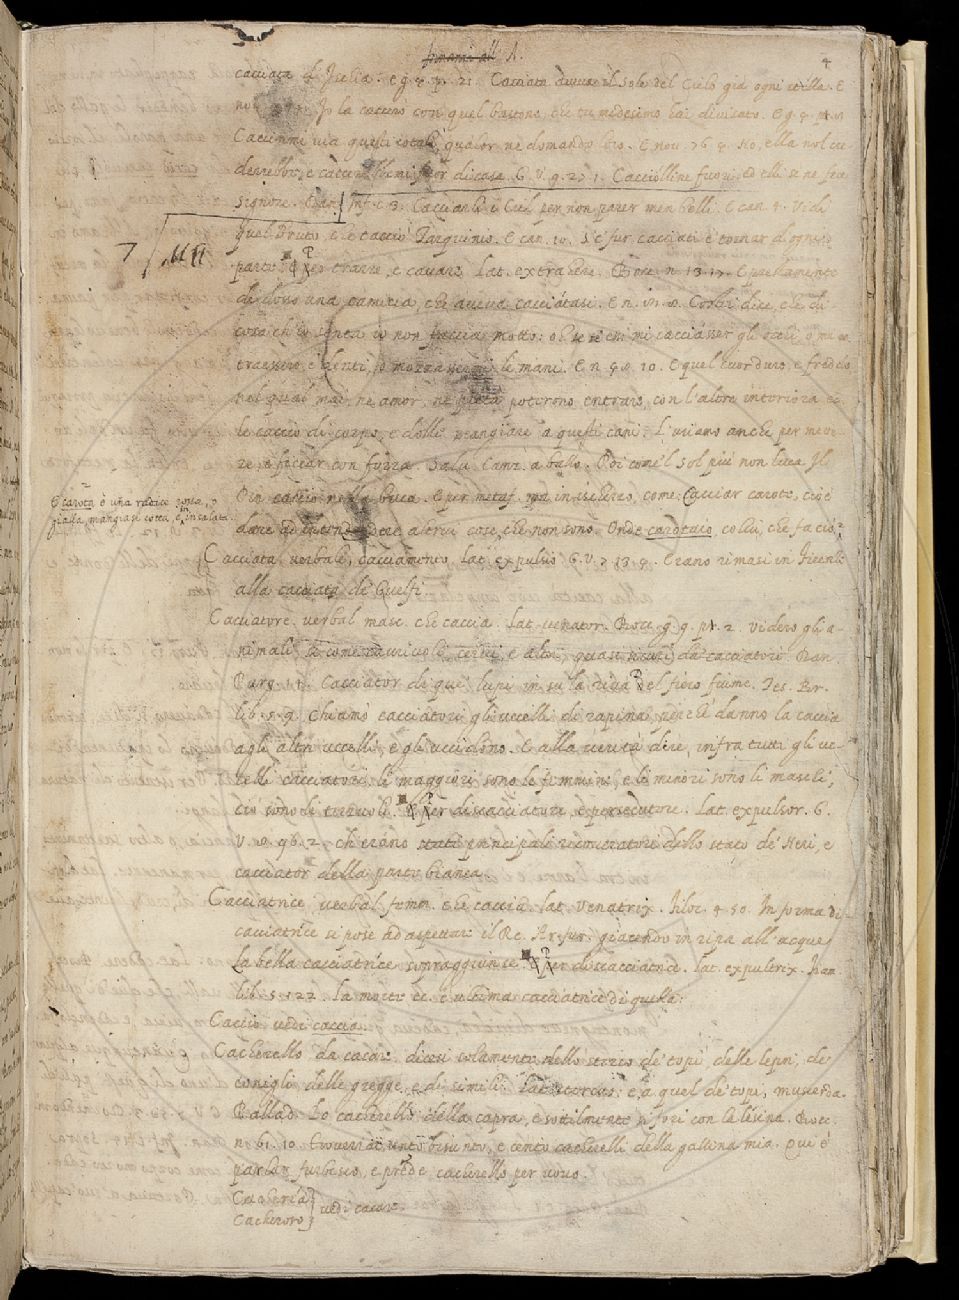 innanzi all A.
4
cacciata di Isclia. e g. 8. p. 21. Cacciata aveva il sole del Cielo già ogni stella. E
Io la caccerò con quel bastone, che tu medesimo hai divisato. E g. 8.
Caccinmi via questi cotali, qualor ne domando loro. E nov. 76. 8. ella nol cre
derrebbe, e caccerebbemi fuor di casa. G. V. 9. 271. Cacciolline fuori, ed elli se ne fece
signore. Dan. Inf. c. 3. Caccianli i Ciel per non parer men belli. E can. 4. Vidi
quel Bruto, che cacciò Tarquinio. E can. 10. S'e' fur cacciati e' tornar d'ogni
parte. Per trarre, e cavare. Lat. extrahere. Bocc. n. 13. 17. E prestamente
di dosso una camicia, che aveva cacciatasi. E n. Costui dice, che di
cosa ch'io senta io non faccia motto: o se se' ch' mi cacciasser gli occhi, o mi
traessero i denti, o mozzassermi le mani. E n. 48. 10. E quel cuor duro, e freddo
nel qual mai nè amor, nè pietà poterono entrare con l'altre interiora
le cacciò di corpo, e dielle mangiare a questi cani. L'usiamo anche per mette-
re, o ficcar con forza. Salv. Canz. a ballo. Poi com'el Sol più non luca Il
Din cacciò nella buca. E per metaf. ma in ischerzo, come: Cacciar carote, cioè
dare ad intendere altrui cose, che non sono. Onde carotaio, colui, che fa ciò.
E carota è una radice rossa, o
gialla, mangiasi cotta, e in insalata.
Cacciata verbale, cacciamento. Lat. expulsio. G. V. 7. 13. 4. Erano rimasi in Firenze
alla cacciata de' Guelfi.
Cacciatore, verbal masc. che caccia. Lat. venator. Bocc. g. 9. p. 2. videro gli a-
nimali sì come cavriuoli, cervi, e altri, quasi sicuri da' cacciatori. Dan.
Purg. Cacciator di que' lupi in su la riva del fiero fiume. Tes. Br.
lib. 5. 9. Chiamò cacciatori gli uccelli di rapina, perchè danno la caccia
agli altri uccelli, e gli uccidono. E alla verità dire, infra tutti gli uc-
celli cacciatori, li maggiori sono le femmine, e li minori sono li maschi,
ciò sono li terzuoli. Per discacciatore, e persecutore. Lat. expulsor. G.
V. 8. 96. 2. ch'erano stati principali ricoveratori dello stato de' Neri, e
cacciator della parte bianca.
Cacciatrice, verbal femm. che caccia. Lat. Venatrix. Filoc. 4. 50. In forma di
cacciatrice si pose ad aspettar il Re. Ar. fur. giacendo in ripa all'acque
la bella cacciatrice sopraggiunse. Per discacciatrice. Lat. expultrix. Aam.
lib. 5. 122. La morte ec. è ultima cacciatrice di quella:
Caccio vedi caccia.
Cacherello da cacar. dicesi solamente dello sterco de' topi, delle lepri, de'
conigli, delle gregge, e di simili. Lat. stercus: e, a quel de' topi, muscerda.
Pallad. Lo cacherello della capra, e sottilmente si fori con la lesina. Bocc.
n. 61. 10. troverrai unto bisunto, e cento cacherelli della gallina mia. Qui è
parlar furbesco, e prende cacherello per uovo.
Cacheria
Cacheroso } vedi cacare.